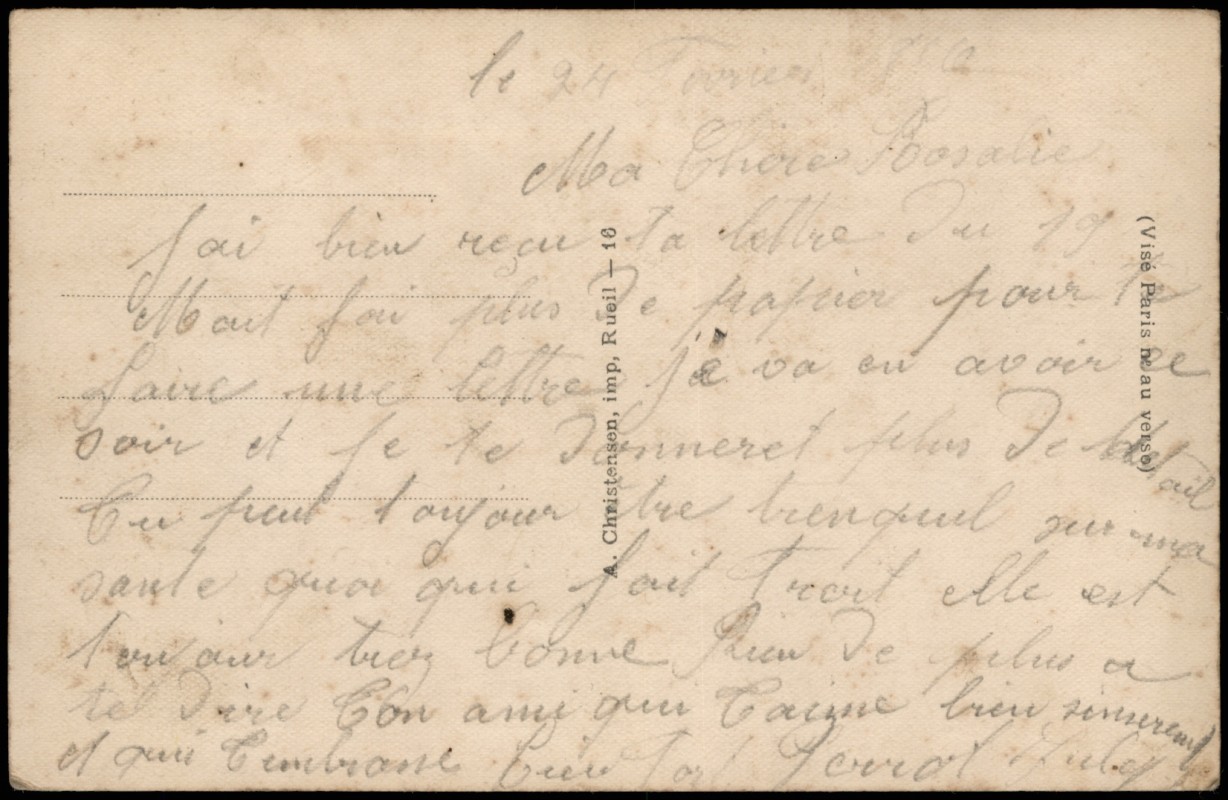 le 24 Fevrier
Ma Chere Rosalie
J'ai bien reçu ta lettre du 19
Mait j'ai plus de papier pour te
faire une lettre je va en avoir ce
soir et je te donneret plus de detail
Tu peut toujour etre trenquil sur ma
sante quoi qui fait froit elle est
toujour trez bonne Rien de plus a
te dire Ton ami qui t'aime bien sinserement
et qui t'embrasse bien
A. Christensen, imp, Rueil — 16
(Visé Paris n. au verso)